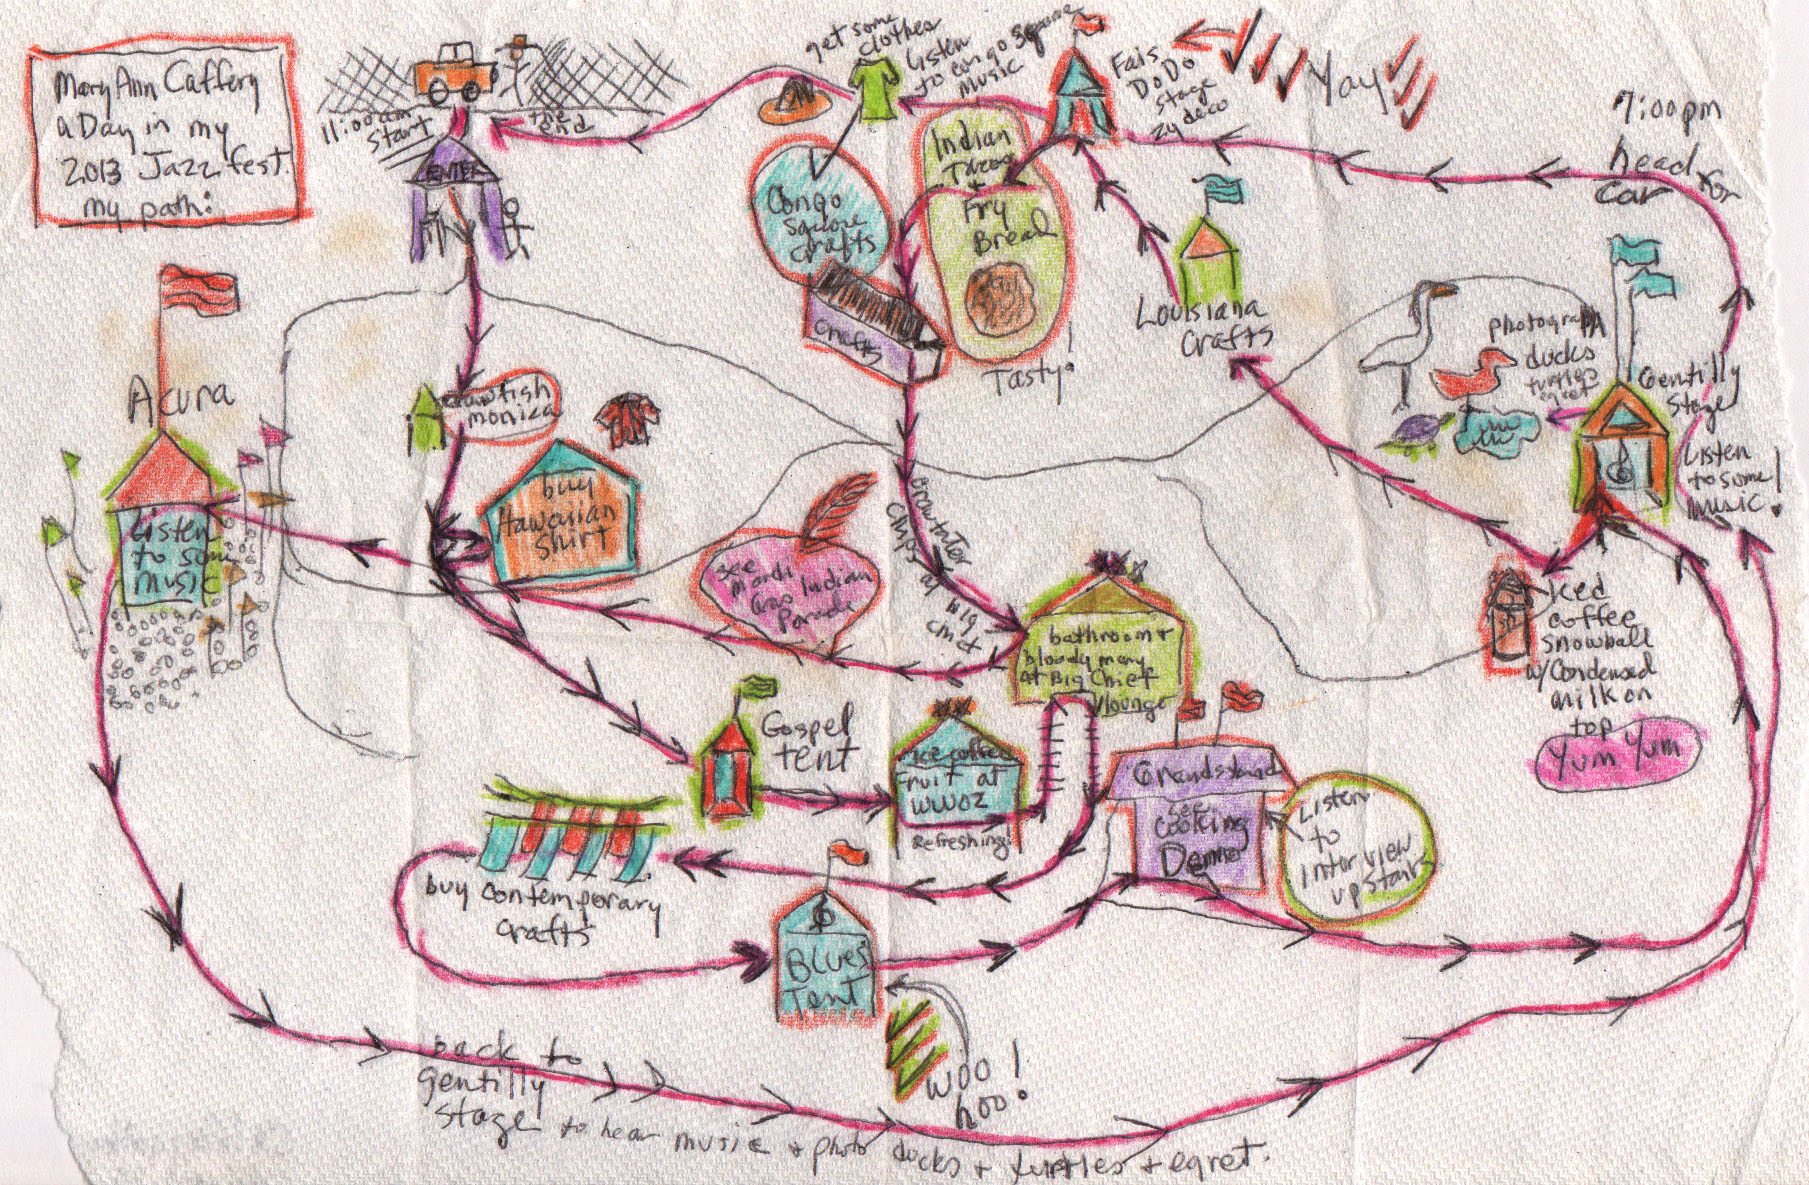 MaryAnn Caffery
a Day in my
2013 Jazzfest.
my path:
11:00am
start
the
end
ENTER
get some
clothes
Listen
to congo square
music
Fais
DoDo
stage
zydeco
Yay
7:00pm
head for
car
Congo
Square
crafts
crafts
Indian
Tacos
+
Fry
Bread
Tasty!
Louisiana
Crafts
photograph
ducks
turtles
egret
Gentilly
Stage
Listen
to some
music!
Acura
Listen
to some
music
crawfish
monica
buy
Hawaiian
Shirt
see
Mardi
Gras Indian
Parade
bathroom +
bloody mary
at Big Chief
lounge
Iced
coffee
snowball
w/condensed
milk on
top
Yum Yum
Gospel
tent
ice coffee
Fruit at
WWOZ
Refreshing!
Grandstand
see
Cooking
Demo
Listen
to
Interview
upstairs
buy contemporary
crafts
Blues
Tent
woo
hoo!
back to
gentilly
stage to hear music + photo ducks + turtles + egret.